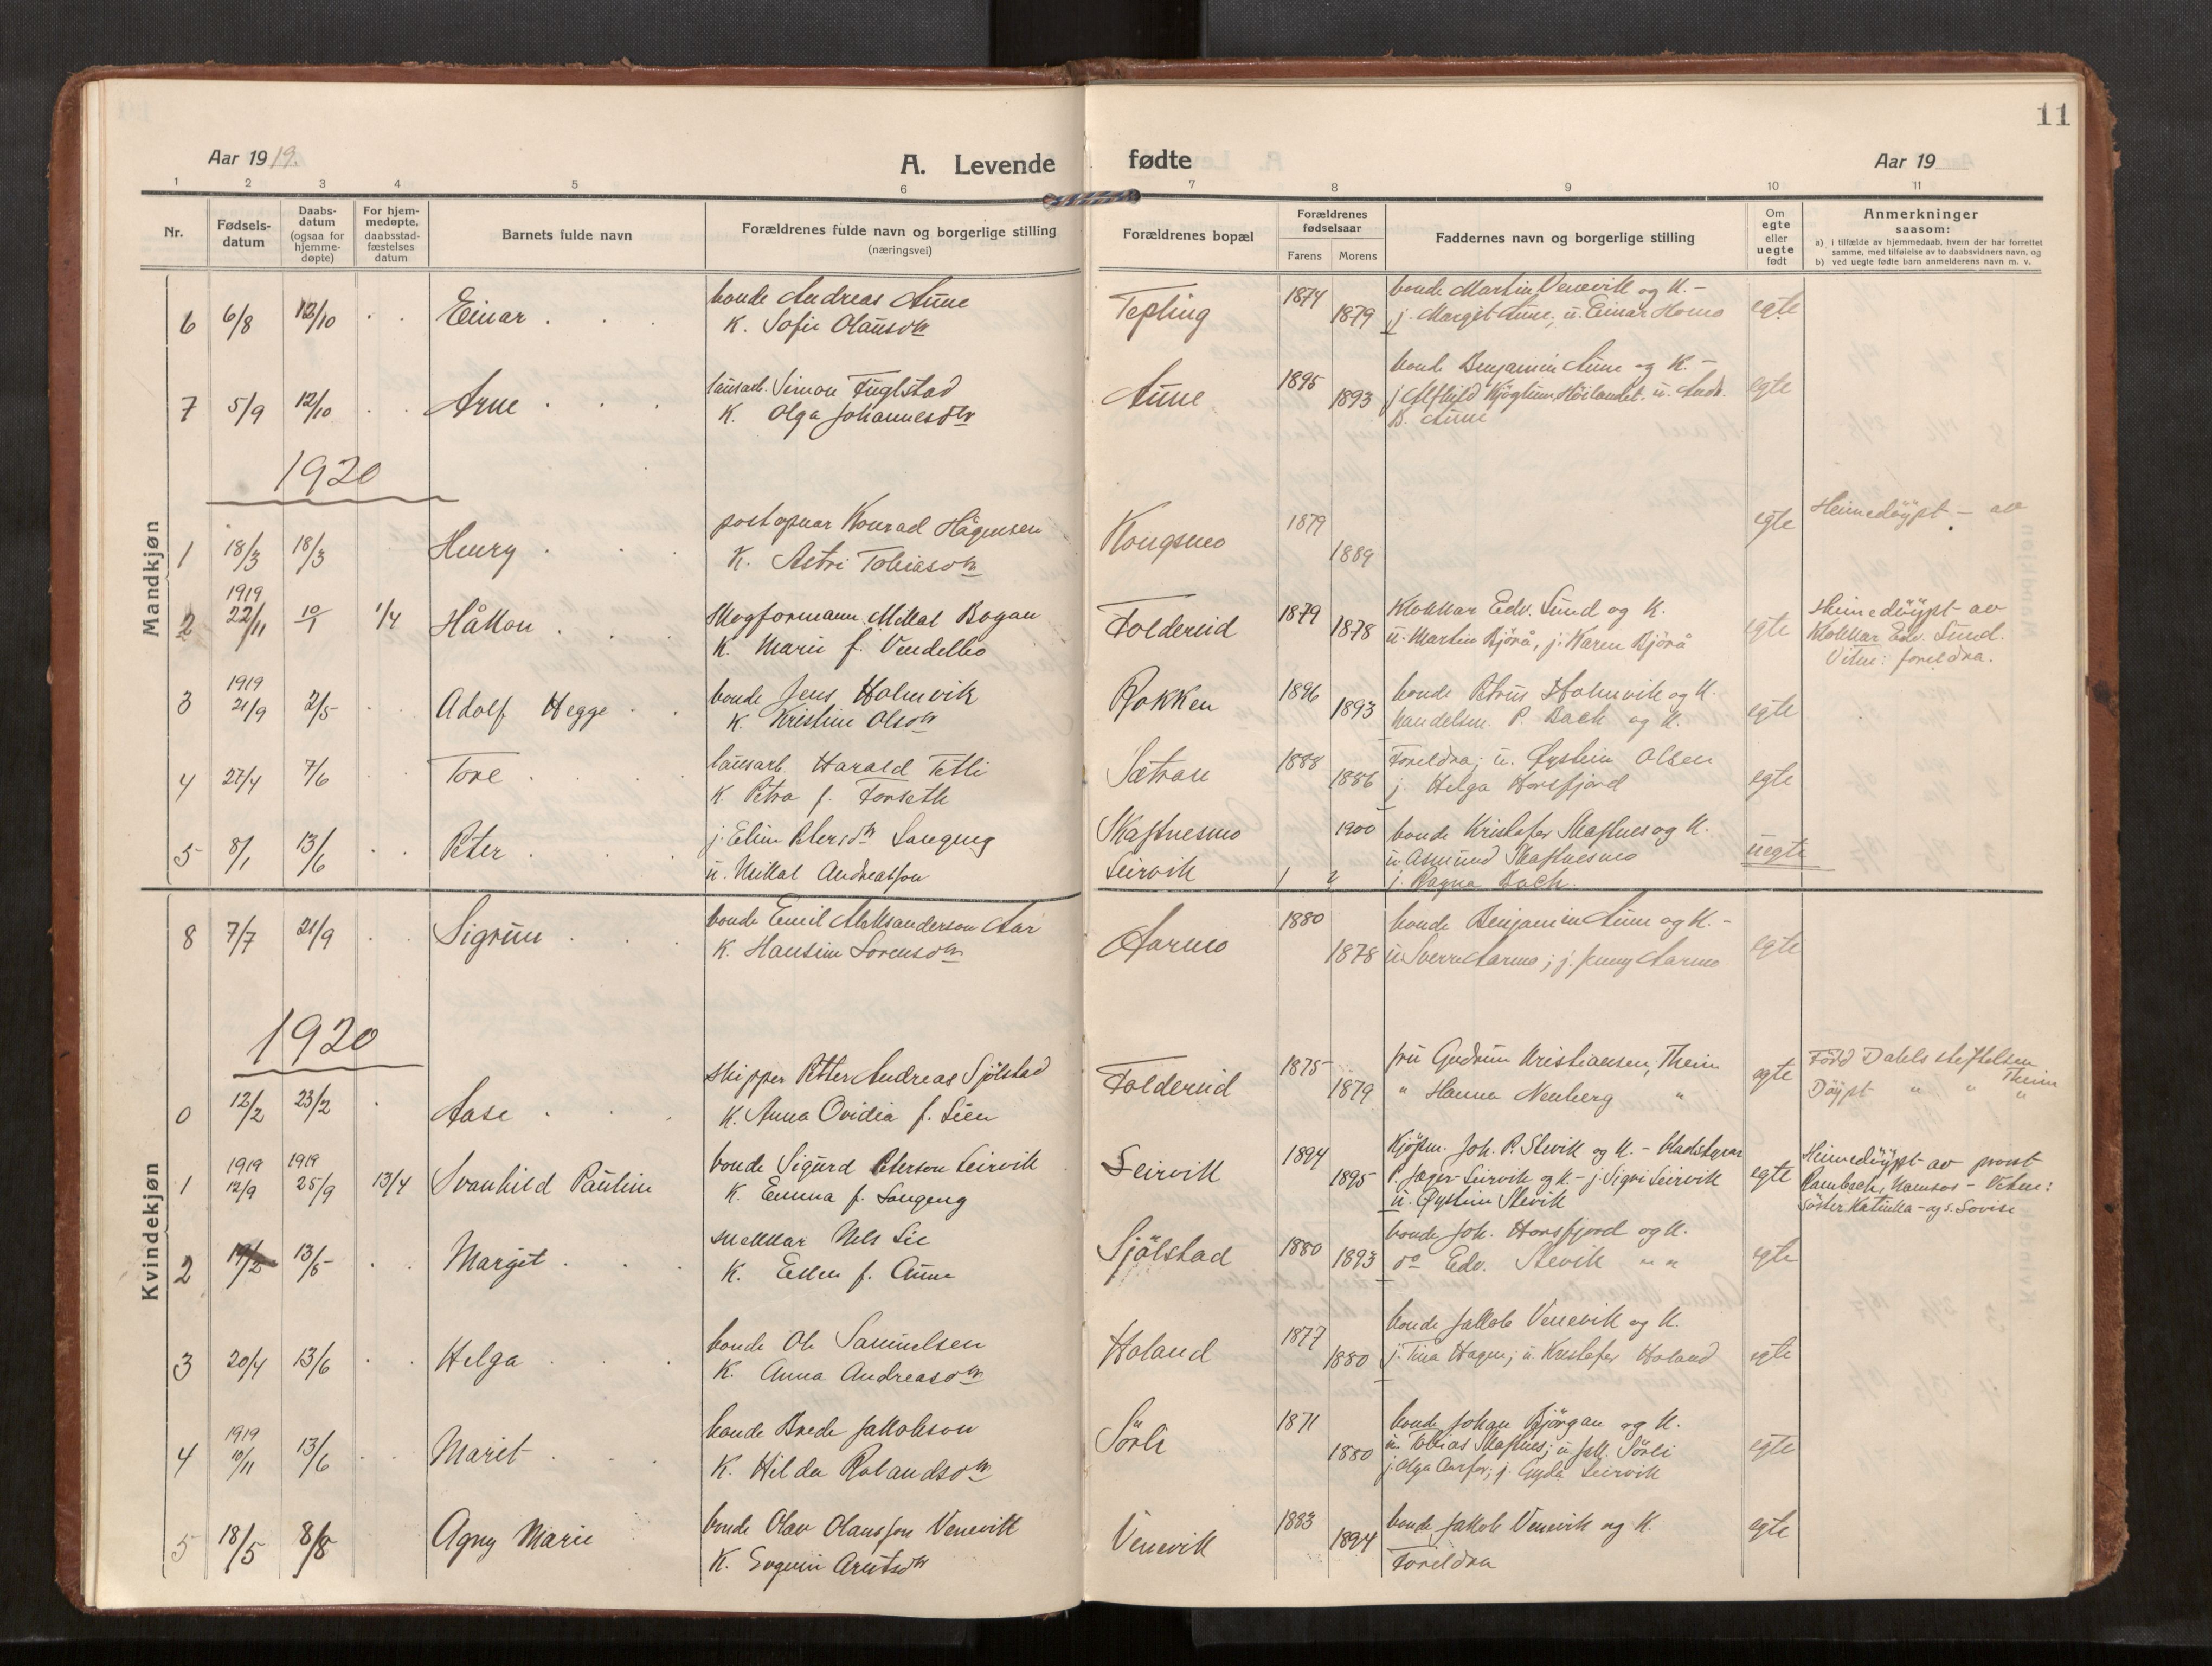 11
Aar 1919.
A. Levende fødte
Aar 19
1 2 3 4 5 6 7 8 9 10 11
Nr.
Fødsels-
datum
Daabs-
datum
(ogsaa for
hjemme-
døpte)
For hjem-
medøpte,
daabsstad-
fæstelses
datum
Barnets fulde navn
Forældrenes fulde navn og borgerlige stilling
(næringsvei)
Forældrenes bopæl
Forældrenes
fødselsaar
Farens Morens
Faddernes navn og borgerlige stilling
Om
egte
eller
uegte
født
Anmerkninger
saasom:
a) i tilfælde av hjemmedaab, hvem der har forrettet
samme, med tilføielse av to daabsvidners navn, og
b) ved uegte fødte barn anmelderens navn m. v.
Mandkjøn
6 6/8 12/10 Einar
bonde Andreas Aune
K. Sofie Olausdtr
Tepling 1874 1879
bonde Martin Venevik og K. -
j. Margit Aune; u. Einar Homo
egte
7 5/9 12/10 Arne
lausarb. Simon Fuglstad
K. Olga Johannesdtr
Aune 1895 1893
bonde Benjamin Aune og K. -
j. Alfhild Kjøglum, Høilandet. u. Andr.
B. Aune
egte
1920
1 18/3 18/3 Henry
postopnar Konrad Hågensen
K. Astri Tobiasdtr
Kongsmo 1879 1889
egte
Heimedøypt - av
1919
2 22/11 10/1 1/4 Håkon
Skogformann Mikal Bogan
K. Marie f. Vendelbo
Foldereid 1879 1878
Klokkar Edv. Sund og K.
u. Martin Bjørå, j. Karen Bjørå
egte
Heimedøypt av
Klokkar Edv. Sund.
Vitne: foreldra.
1919
3 21/9 2/5 Adolf Hegge
bonde Jens Holmvik
K. Kristine Olsdtr
Rokken 1896 1893
bonde Petrus Holmvik og K.
handelsm. P. Bach og K.
egte
4 27/4 7/6 Tore
lausarb. Harald Tetli
K. Petra f. Forseth
Sætran 1888 1886
Foreldra; u. Øystein Olsen
j. Helga Horsfjord
egte
5 8/1 13/6 Peter
j. Eline Petersdtr Langeng
u. Mikal Andreasson
Skaftnesmo
Leirvik
1900
bonde Kristofer Skaftnes og K.
u. Asmund Skaftnesmo
j. Ragna Bach.
uegte
Kvindekjøn
8 7/7 21/9 Sigrun
bonde Emil Aleksanderson Aar
K. Hansine Sorensdtr
Aarmo 1880 1878
bonde Benjamin Aune og K. -
u. Sverre Aarmo; j. Jenny Aarmo
egte
1920
0 12/2 23/2 Aase
Skipper Petter Andreas Sjølstad
K. Anna Ovidia f. Lien
Foldereid 1875 1879
fru Gudrun Kristiansen, Theim
" Hanna Nenberg "
egte
Fødd Dahls stiftelsen Theim
Døypt " " "
1919 1919
1 12/9 25/9 13/4 Svanhild Pauline
bonde Sigurd Peterson Leirvik
K. Emma f. Langeng
Leirvik 1894 1895
Kjøpm. Joh. P. Slevik og K. -
P. Jæger Leirvik og K - j. Signi Leirvik
u. Øystein Slevik
egte
Heimedøypt av prost
Rambech, Namsos - Vitne:
Søster Katinka - og s. Lovise
2 13/5 Margit
snekkar Nels Lie
K. Ellen f. Aune
Sjølstad 1880 1893
bonde Joh. Horsfjord og K.
do Edv. Slevik " "
egte
3 20/4 13/6 Helga
bonde Ole Samuelsen
K. Anna Andreasdtr
Holand 1877 1880
bonde Jakob Venevik og K.
j. Tina Hagen; u. Kristofer Holand
egte
1919
4 10/11 13/6 Marit
bonde Brede Jakobson
K. Hilda Rolandsdtr
Sørli 1871 1880
bonde Johan Bjørgan og K.
u. Tobias Skaftnes; u. Jak. Sørli
j. Olga; j. Gyda Leirvik
egte
5 18/5 8/8 Agny Marie
bonde Olav Olausson Venevik
K. Evgenie Arntsdtr
Venevik 1883 1894
bonde Jakob Venevik og K.
Foreldra
egte